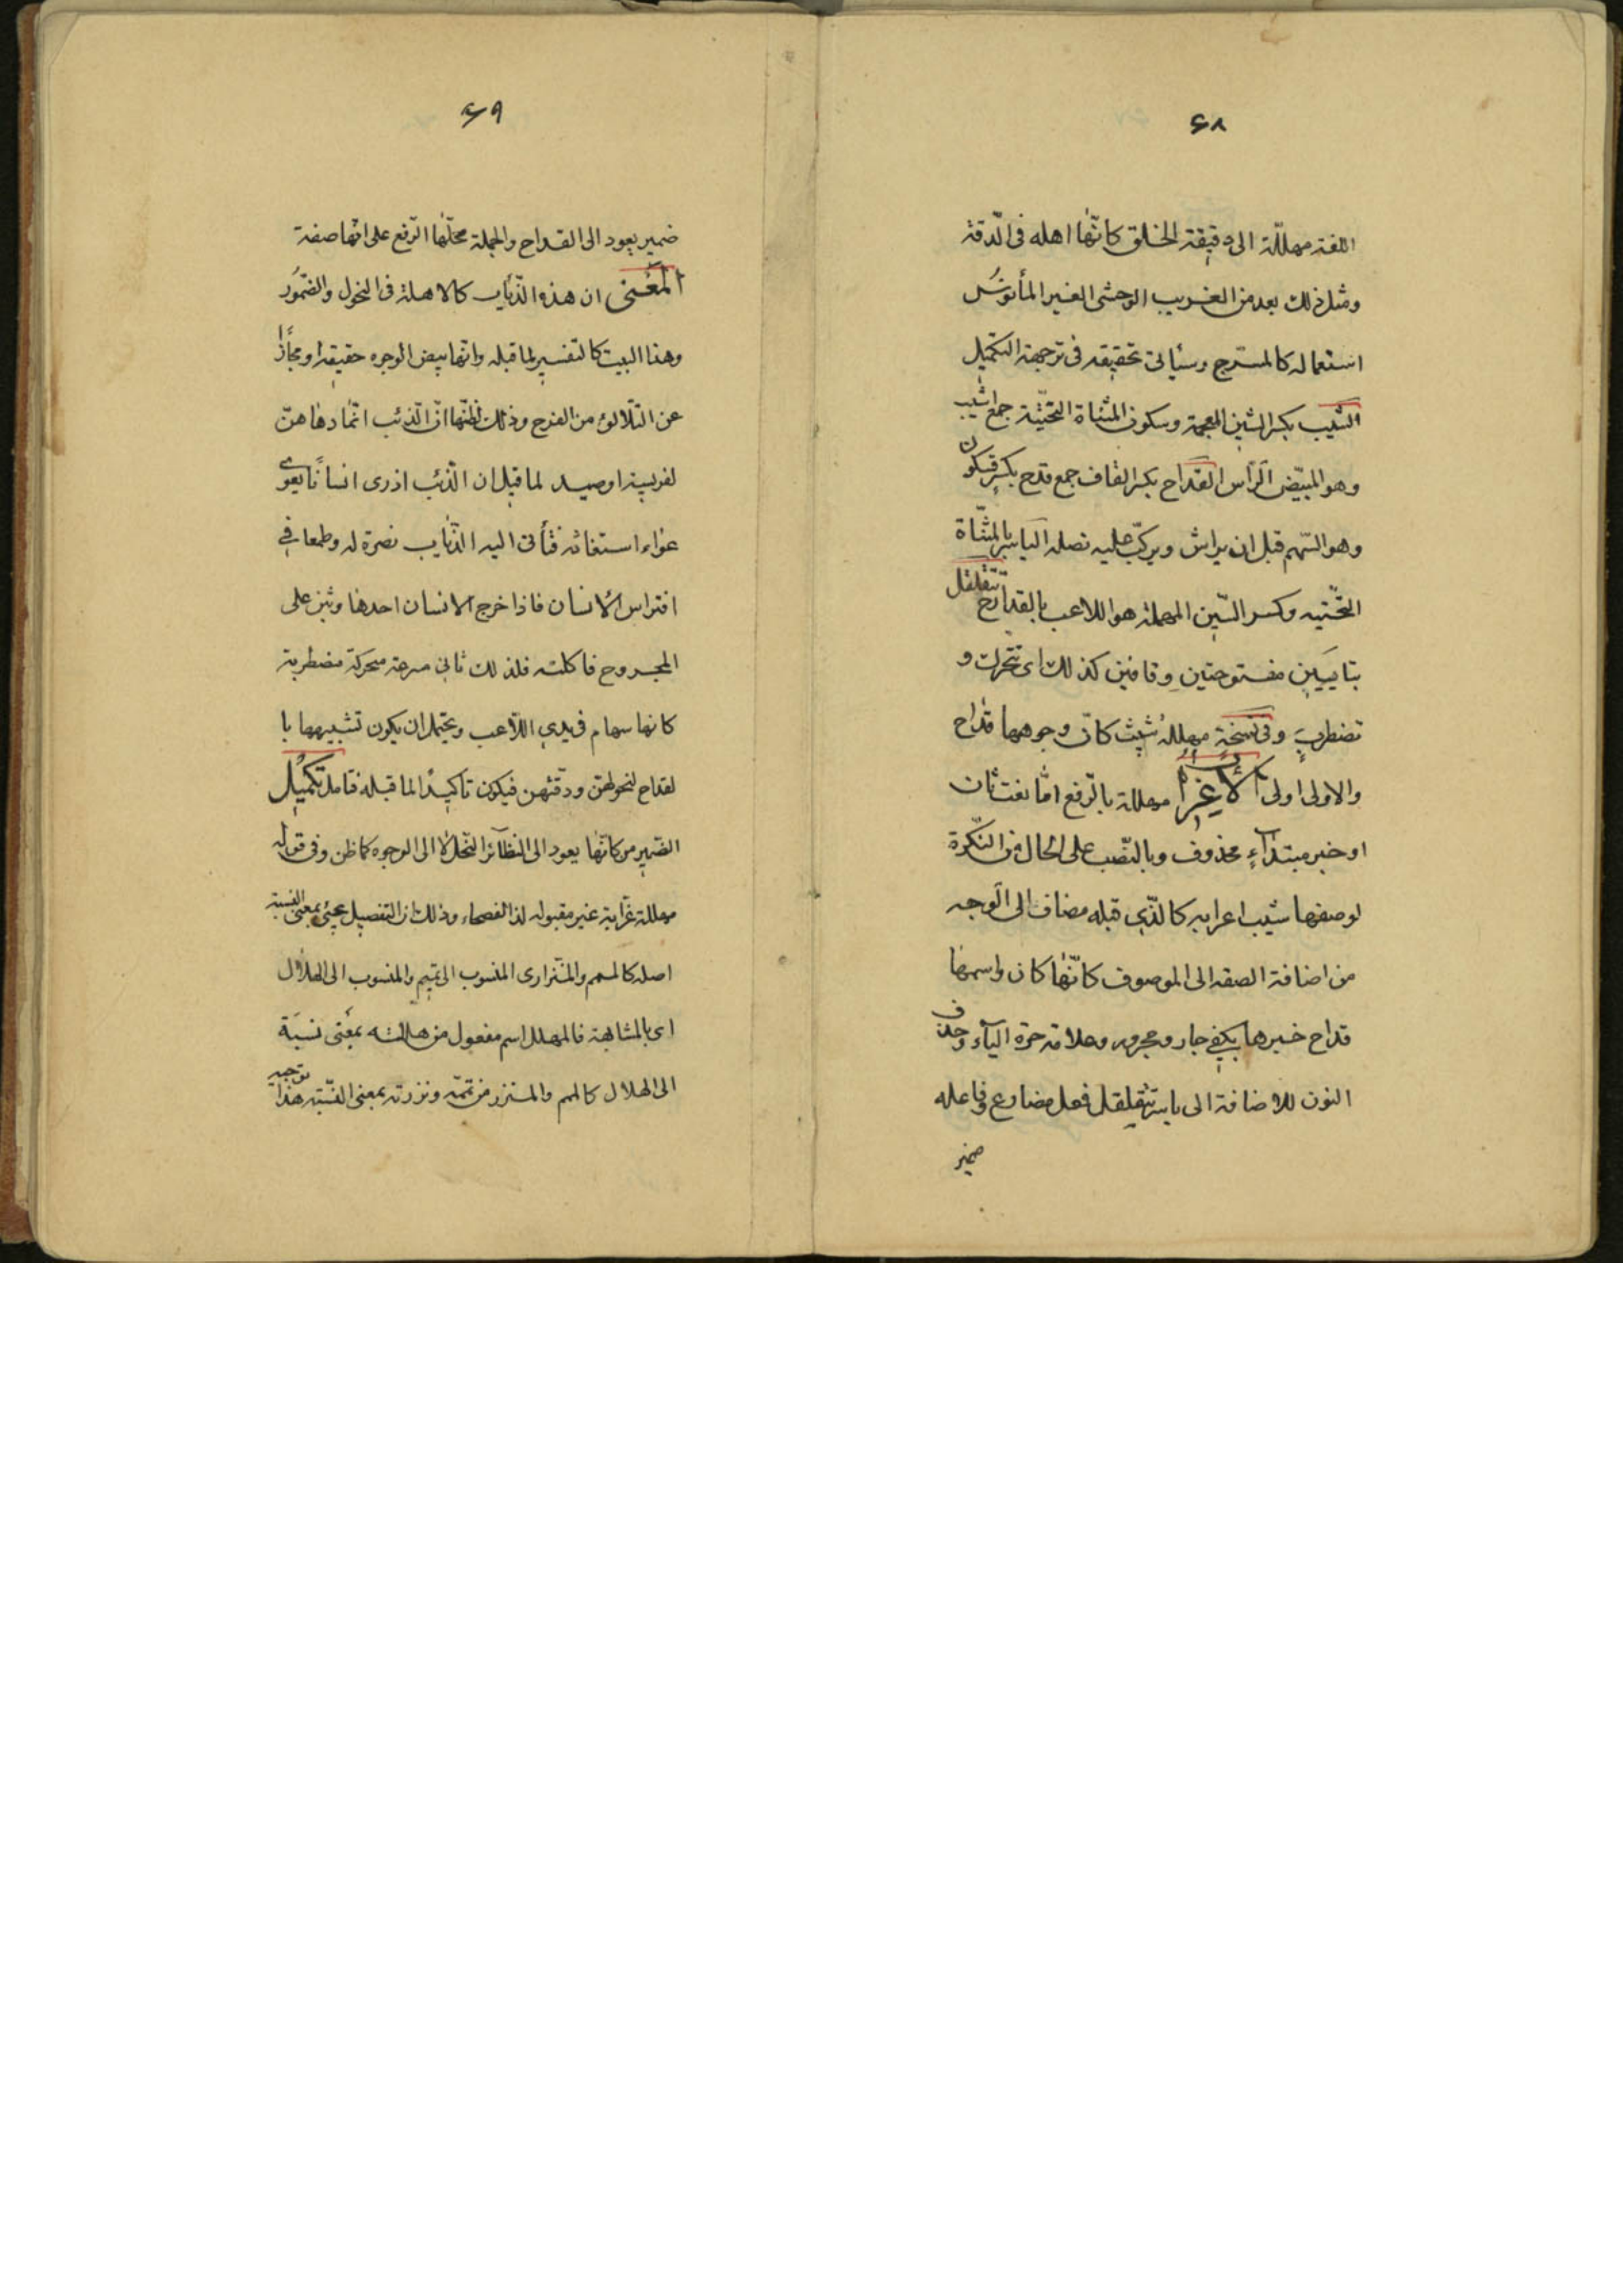 ۶۸
اللغة مهللة الى دقيقة الخلق كانها اهله فى الدقة
ومثل ذلك يعد من الغريب الوحشى الغير المأنوس
استعماله كالمسرج وسيأتى تحقيقه فى ترجمة التكميل
الشيب بكسر الشين المعجمة وسكون المثناة التحتية جمع اشيب
وهو المبيض الرأس القداح بكسر القاف جمع قدح بكسر فسكون
وهو السهم قبل ان يراش ويركب عليه نصله الياسر بالمثناة
التحتيه وكسر السين المهملة هو اللاعب بالقداح تتقلقل
بتايين مفتوحتين وقافين كذلك اى تتحرك و
تضطرب وفى نسخة مهللة شيب كان وجوهها قداح
والاولى اولى الاعراب مهللة بالرفع اما نعت ثان
او خبر مبتداء محذوف وبالنصب على الحال من النكرة
لوصفها شيب اعرابه كالذى قبله مضاف الى الوجه
من اضافة الصفه الى الموصوف كانها كان واسمها
قداح خبرها بكفى جار ومجرور وعلامة جره الياء وحذف
النون للاضافة الى ياسر تتقلقل فعل مضارع وفاعله
ضمير
۶۹
ضمير يعود الى القداح والجملة محلها الرفع على انها صفة
المعنى ان هذه الذئاب كالاهلة فى النحول والضمور
وهذا البيت كالتفسير لما قبله وانها بيض الوجوه حقيقة او مجازا
عن التلالؤ من الفرح وذلك لظنها ان الذئب انما دعاهن
لفريسة او صيد لما قيل ان الذئب اذ رى انسانا يعوى
عواء استغاثه فتأتى اليه الذئاب نصرة له وطمعا فى
افتراس الانسان فاذا خرج الانسان احدها وثبن على
المجروح فاكلته فلذلك تاتى مسرعة متحركة مضطربة
كانها سهام فى يدى اللاعب ويحتمل ان يكون تشبيهها با
لقداح لنحولهن ودقتهن فيكون تاكيدا لما قبله فتامل تكميل
الضمير من كانها يعود الى النظائر النحل لا الى الوجوه كما ظن وفى قوله
مهللة غرابة غير مقبوله لذا الفصحاء وذلك ان التفعيل يجئ بمعنى النسبة
اصله كالمتمم والمتنزرى المنسوب الى تميم والمنسوب الى الهلال
اى بالمشابهة فالمهلل اسم مفعول من هللته بمعنى نسبة
الى الهلال كالمتمم والمتنزر من تممه ونزرته بمعنى النسبة هذا توجيه